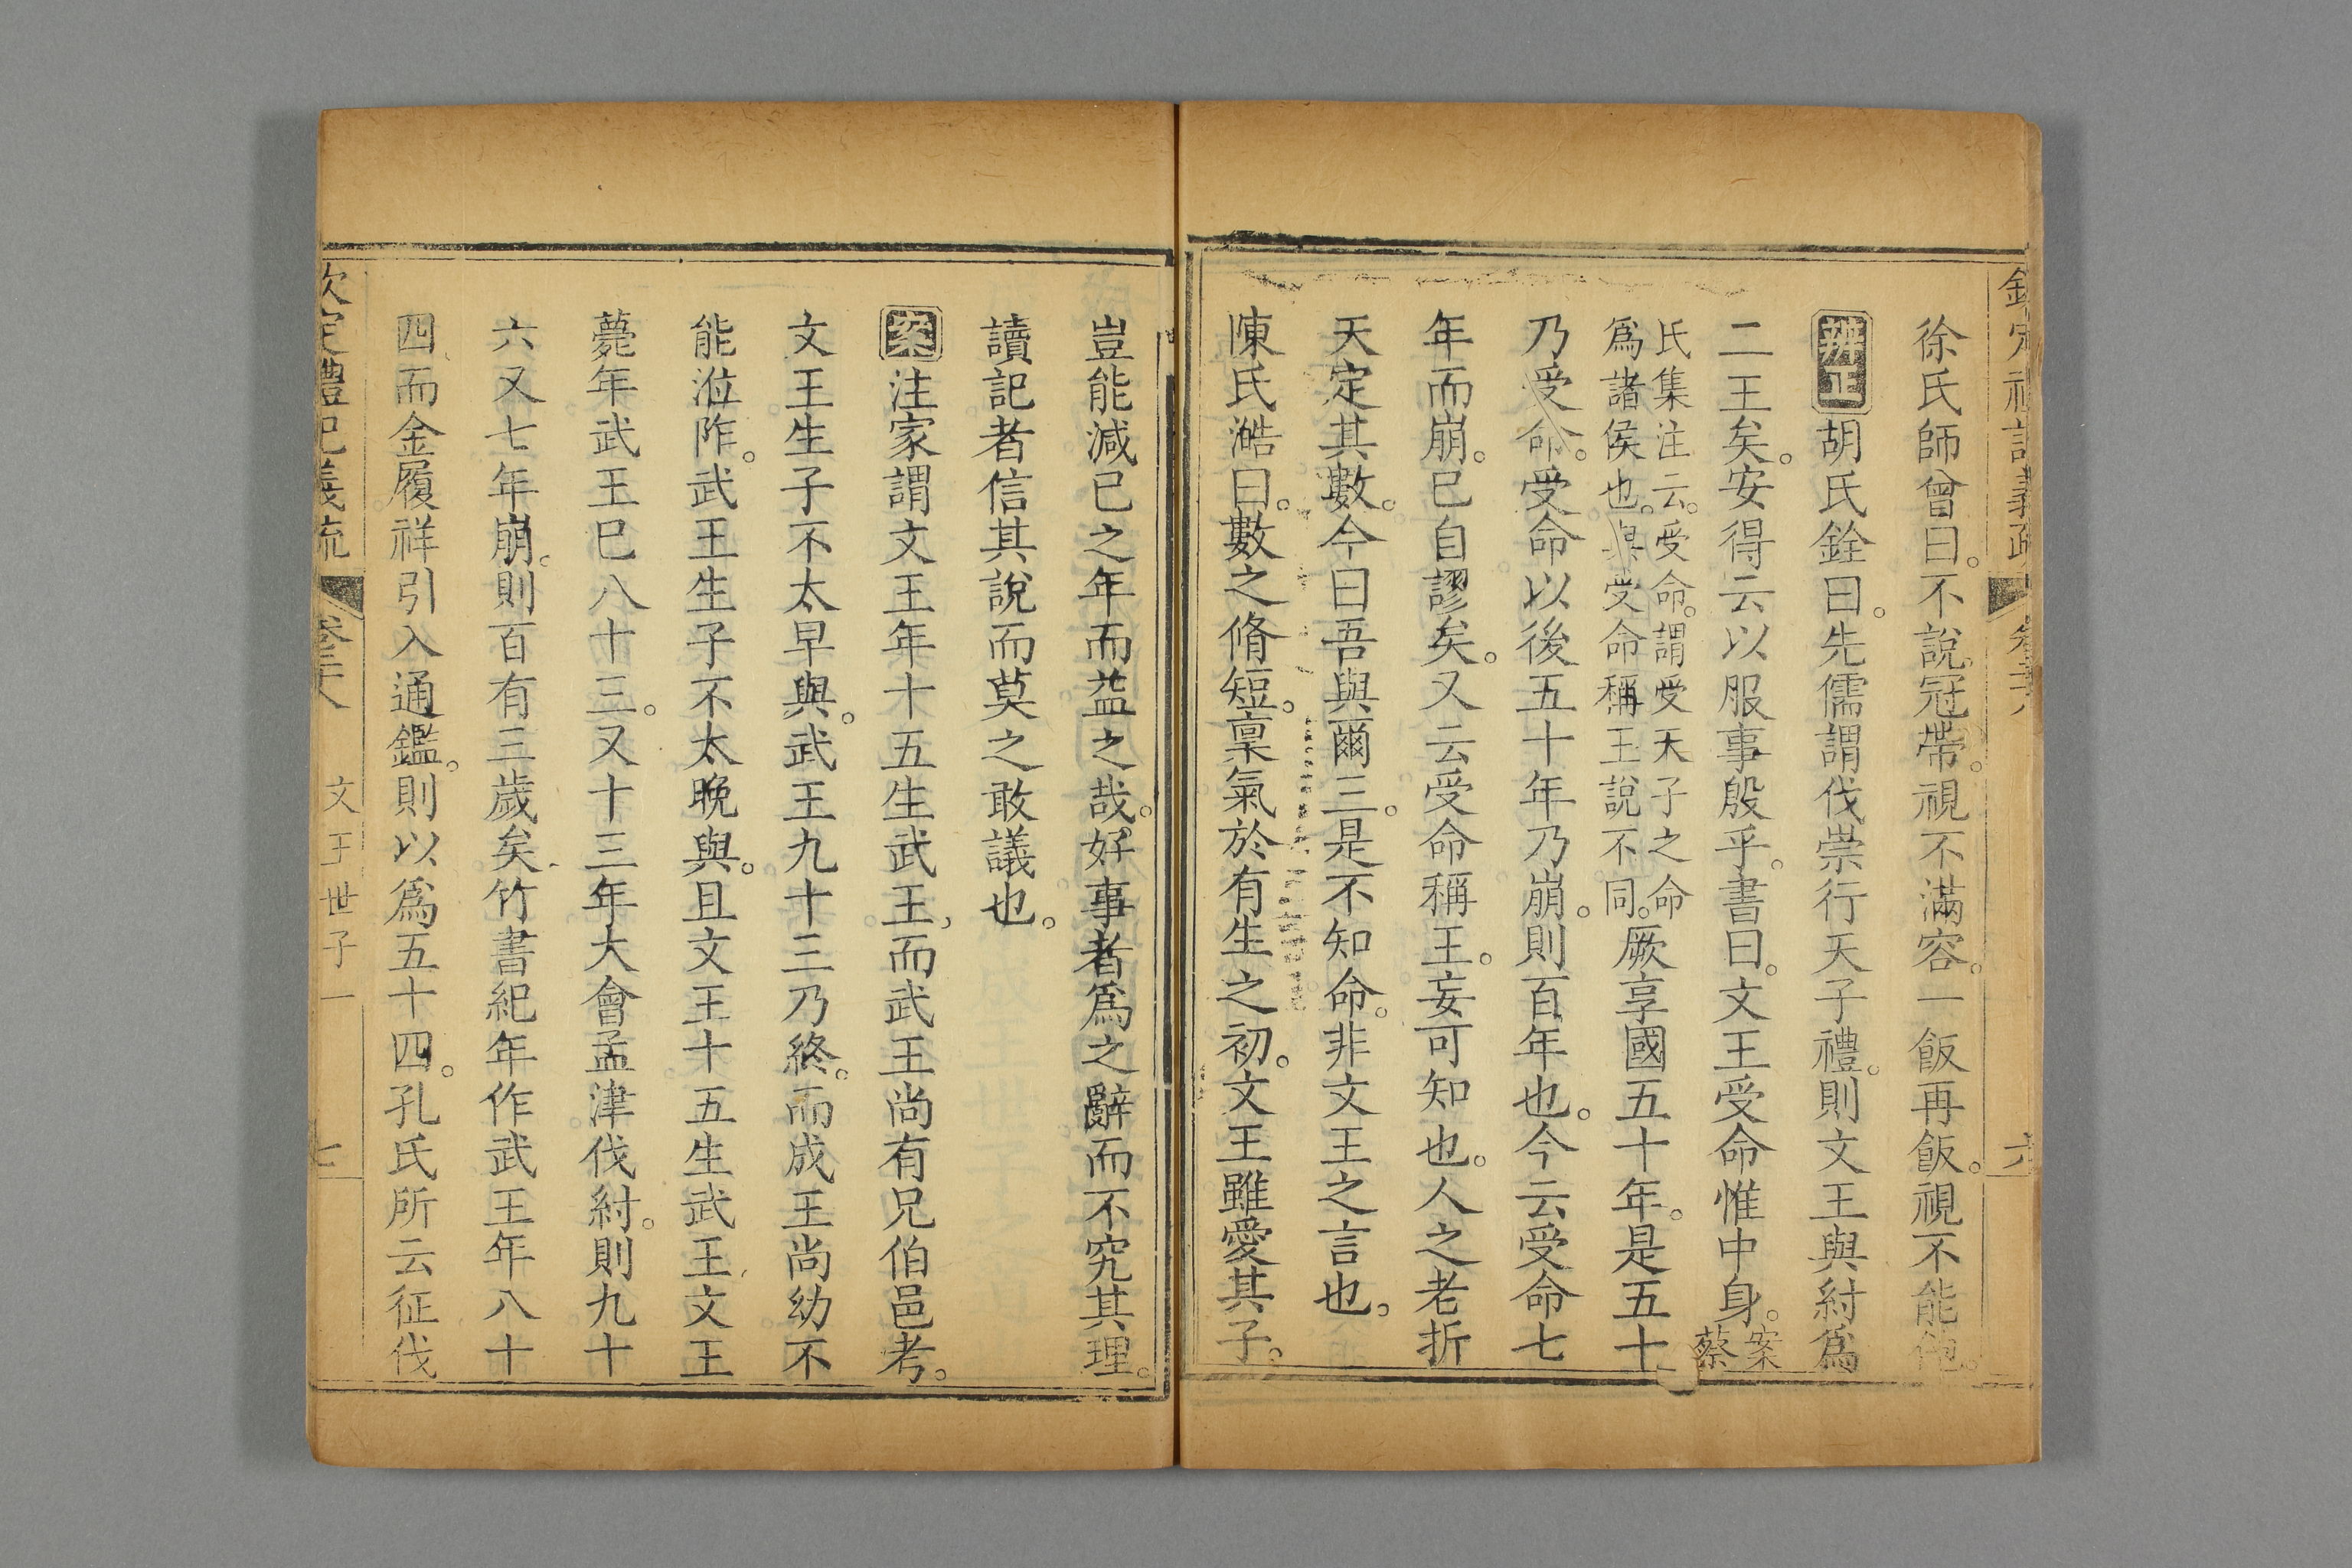 徐氏師曾曰。不說。冠帶。視不滿容。一飯再飯。視不能飽。
辨正胡氏銓曰。先儒謂伐崇行天子禮。則文王與紂爲
二王矣。安得云以服事殷乎。書曰。文王受命惟中身。案蔡
氏集注云。受命。謂受天子之命爲諸侯也。與受命稱王說不同。厥享國五十年。是五十
乃受命。受命以後五十年乃崩。則百年也。今云受命七
年而崩。已自謬矣。又云受命稱王。妄可知也。人之老折
天定其數。今曰吾與爾三。是不知命。非文王之言也。
陳氏澔曰。數之脩短。稟氣於有生之初。文王雖愛其子。
豈能減已之年而益之哉。好事者爲之辭而不究其理。
讀記者信其說而莫之敢議也。
案注家謂文王年十五生武王。而武王尚有兄伯邑考。
文王生子不太早與。武王九十三乃終。而成王尚幼不
能涖阼。武王生子不太晚與。且文王十五生武王文王
薨年武王巳八十三。又十三年大會孟津伐紂。則九十
六又七年崩。則百有三歲矣竹書紀年作武王年八十
四而金履祥引入通鑑。則以爲五十四。孔氏所云征伐
欽定禮記義疏 卷二十八 文王世子一 七